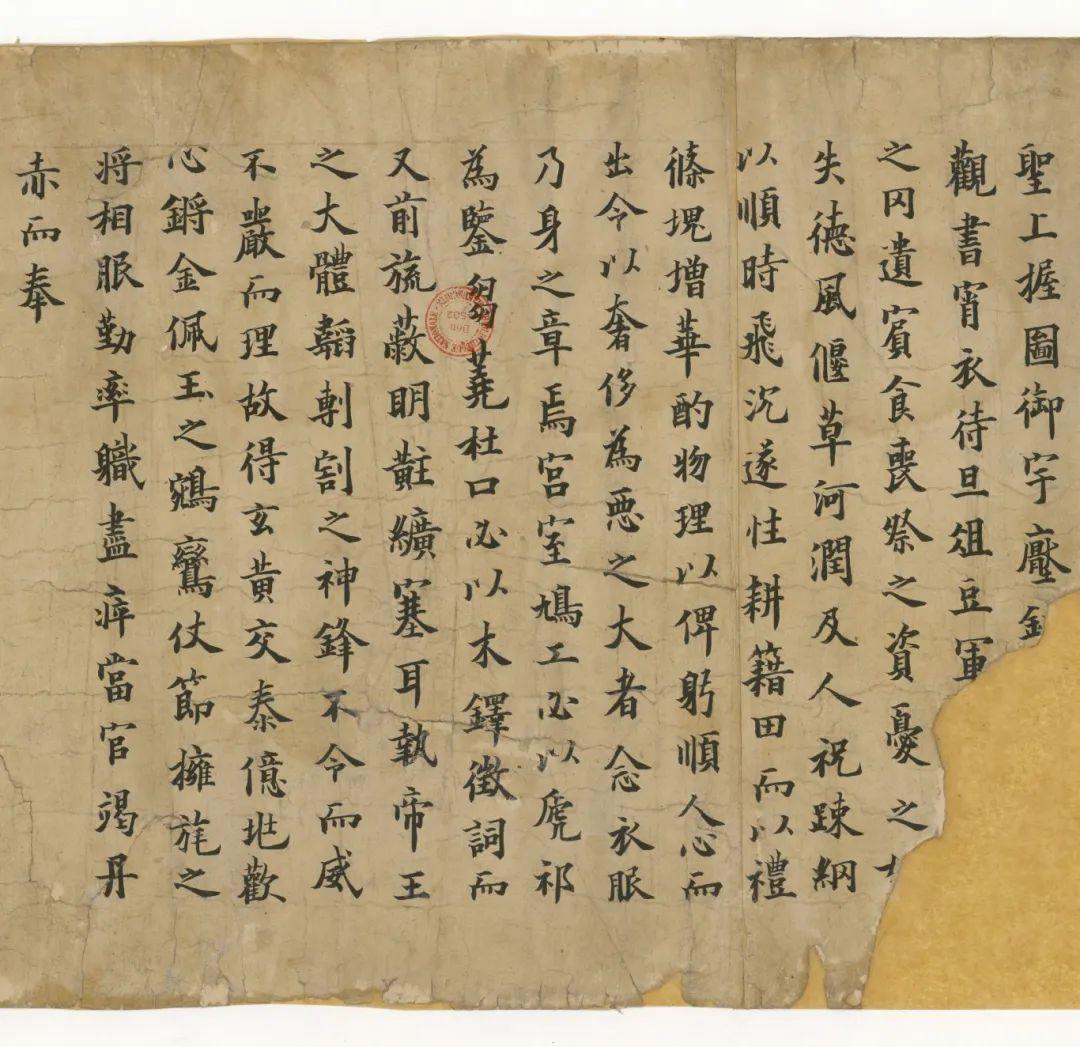 聖上握圖御宇壓
觀書宵衣待旦俎豆軍
之冈遺賔食喪祭之資憂之
失德風偃草河潤及人祝踈網
以順時飛沉遂性耕籍田而以禮
篠塊增華酌物理以俾躬順人心而
出令以奢侈為惡之大者念衣服
乃身之章焉宮室鳩工必以虒祁
為鑒芻蕘杜口必以木鐸徵詞而
又前旒蔽明黈纊塞耳執帝王
之大體韜剸割之神鋒不令而威
不嚴而理故得玄黃交泰億兆歡
心鏘金佩玉之鵷鸞仗節擁旄之
将相服勤率職盡瘁當官竭丹
赤而奉